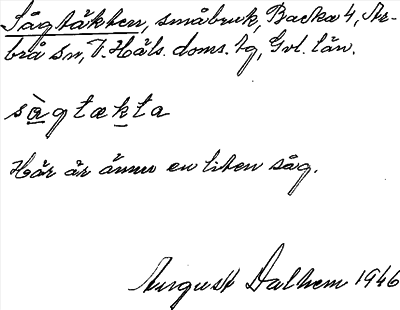 Sågtäkten, småbruk, Backa 4, Ar-
brå sn, V. Häls. doms. tg, Gvl. län.
sàgtækta
Här är ännu en liten såg.
August Dalhem 1946